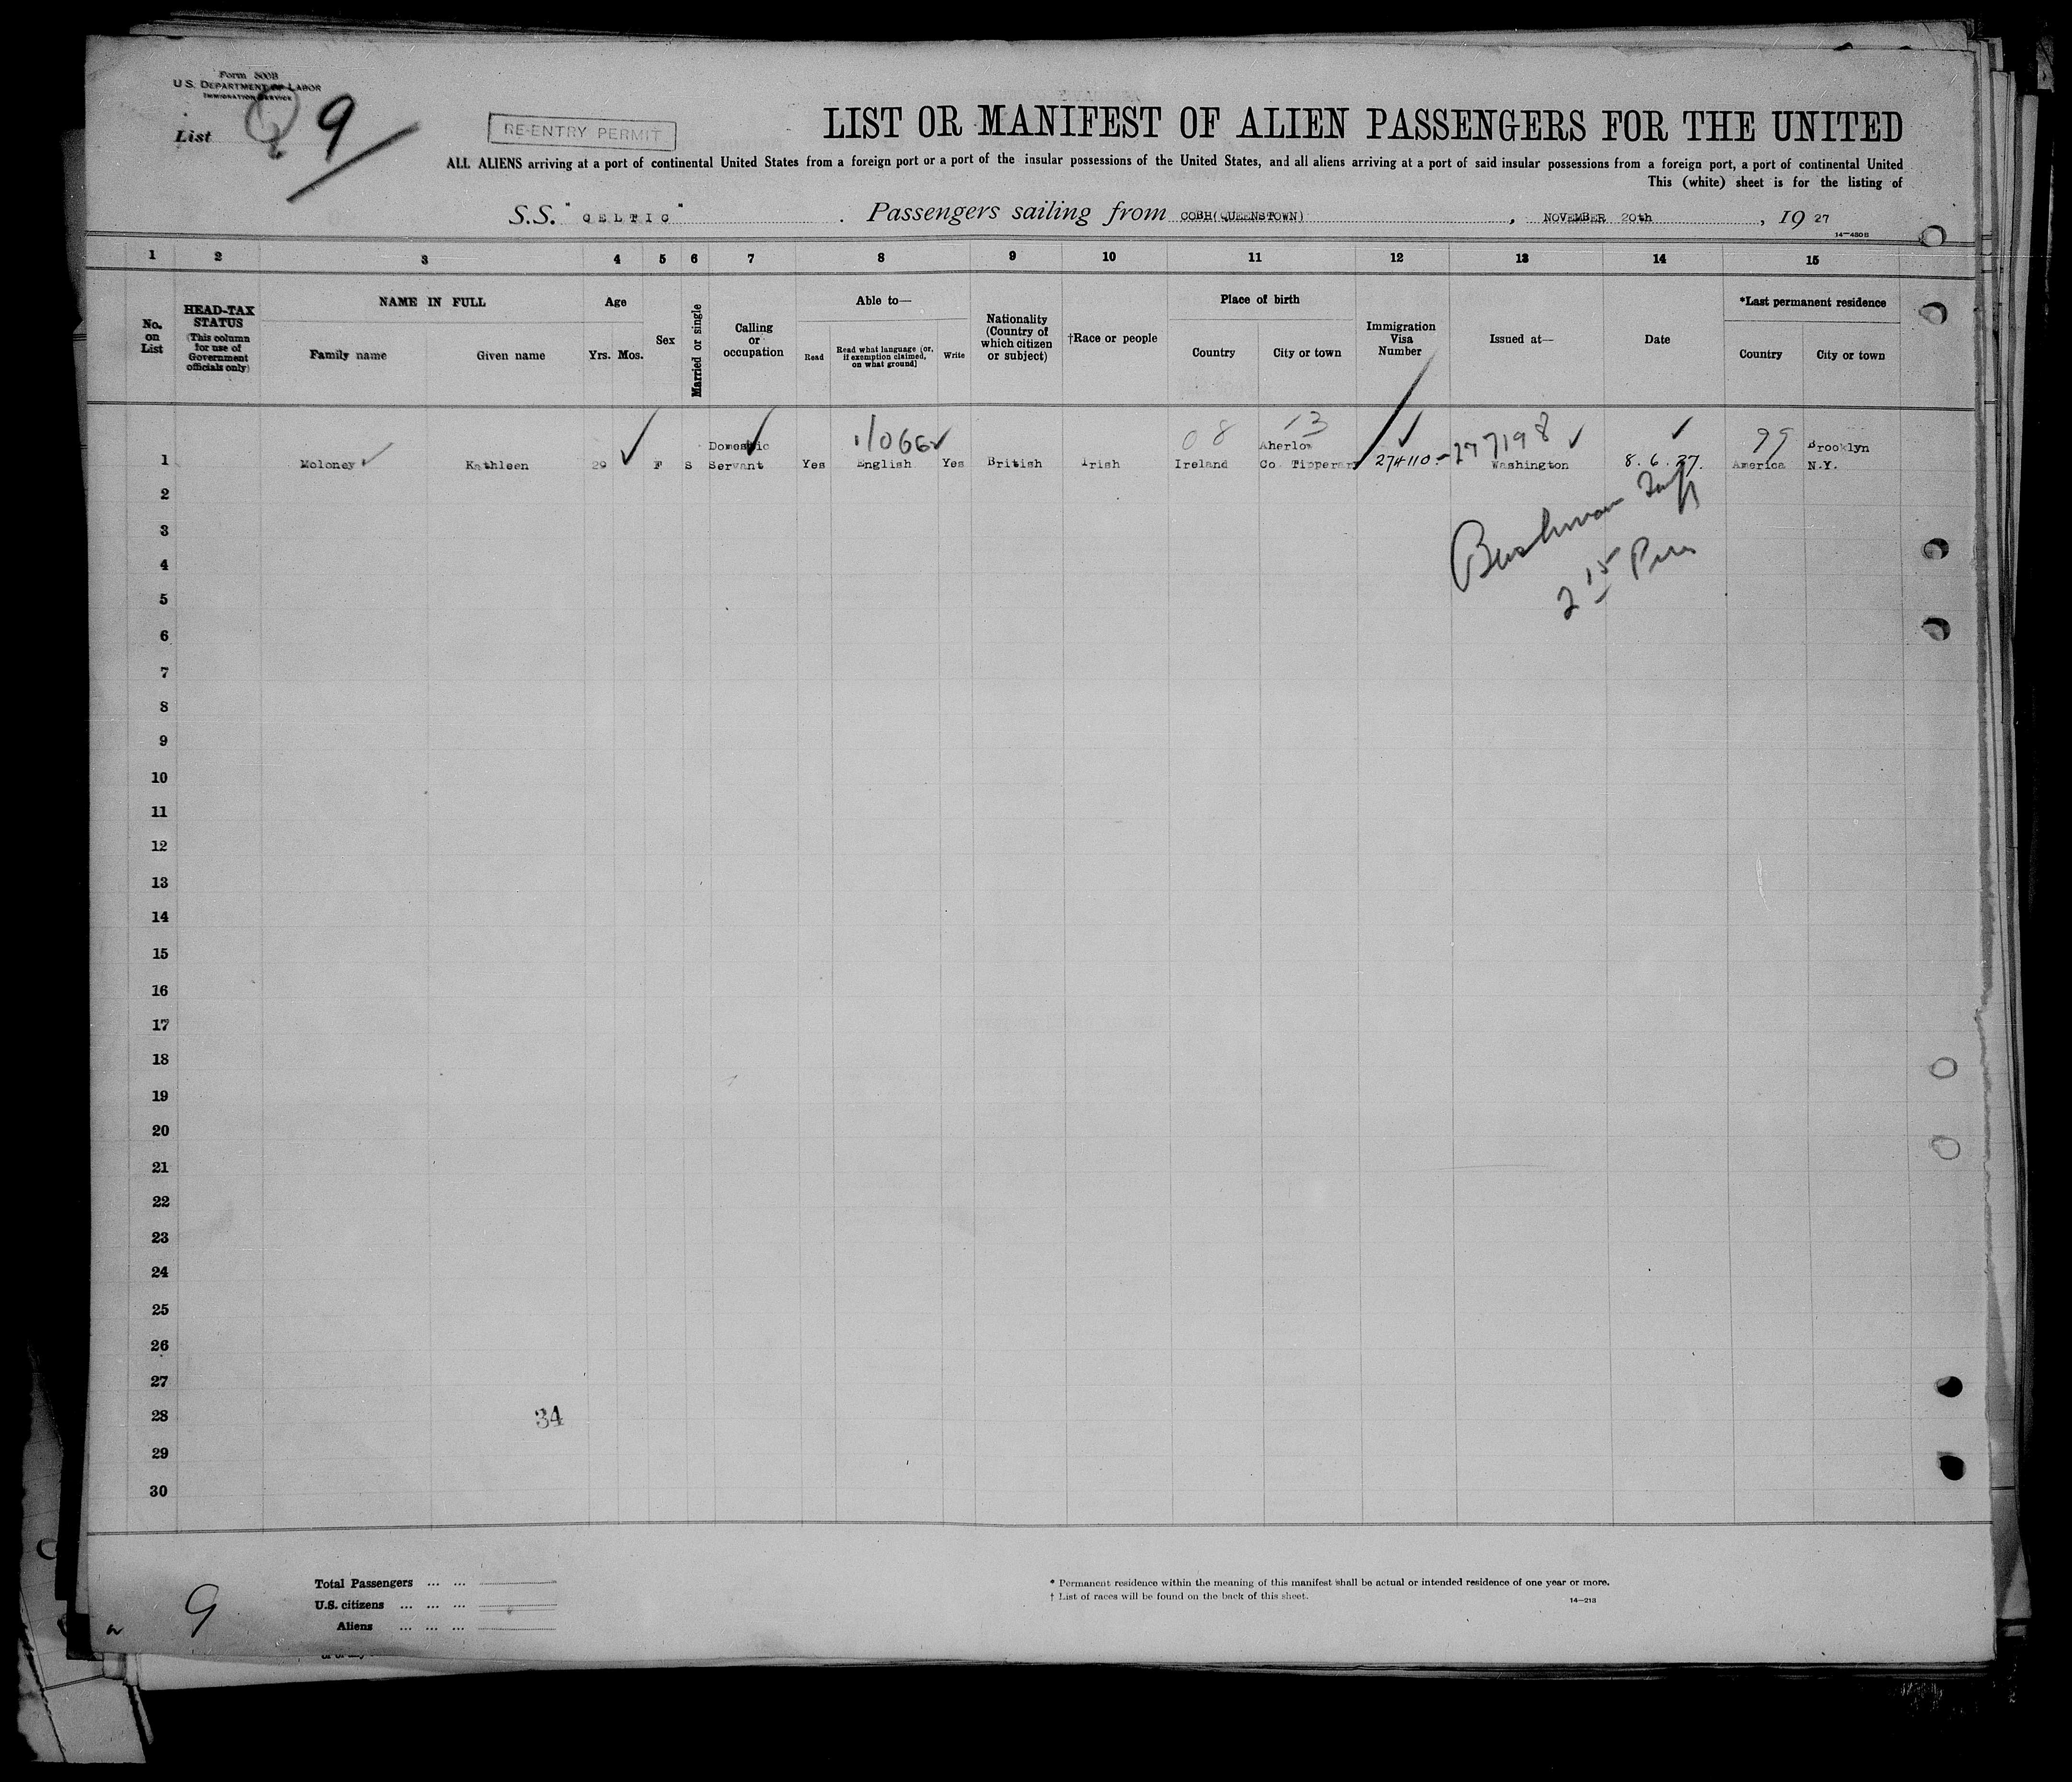 Form 500B
U.S. DEPARTMENT OF LABOR
IMMIGRATION SERVICE
List 9
RE-ENTRY PERMIT
LIST OR MANIFEST OF ALIEN PASSENGERS FOR THE UNITED
ALL ALIENS arriving at a port of continental United States from a foreign port or a port of the insular possessions of the United States, and all aliens arriving at a port of said insular possessions from a foreign port, a port of continental United
This (white) sheet is for the listing of
S.S. "CELTIC". Passengers sailing from COBH(QUEENSTOWN), NOVEMBER 20th, 1927
14—480B
1 2 3 4 5 6 7 8 9 10 11 12 13 14 15
No. on List
HEAD-TAX STATUS
(This column for use of Government officials only)
NAME IN FULL
Family name Given name
Age
Yrs. Mos.
Sex
Married or single
Calling or occupation
Able to—
Read
Read what language (or, if exemption claimed, on what ground)
Write
Nationality (Country of which citizen or subject)
†Race or people
Place of birth
Country City or town
Immigration Visa Number
Issued at—
Date
*Last permanent residence
Country City or town
1/066 08 13 297198 99
Domestic Aherlow Brooklyn
1 Moloney Kathleen 29 F S Servant Yes English Yes British Irish Ireland Co Tipperary 274110 Washington 8.6.27. America N.Y.
2
3
4
5
6
7
8
9
10
11
12
13
14
15
16
17
18
19
20
21
22
23
24
25
26
27
28 34
29
30
Bushman
2 15
Total Passengers ... ...
U.S. citizens ... ... ...
Aliens ... ... ...
* Permanent residence within the meaning of this manifest shall be actual or intended residence of one year or more.
† List of races will be found on the back of this sheet.
14—213
9